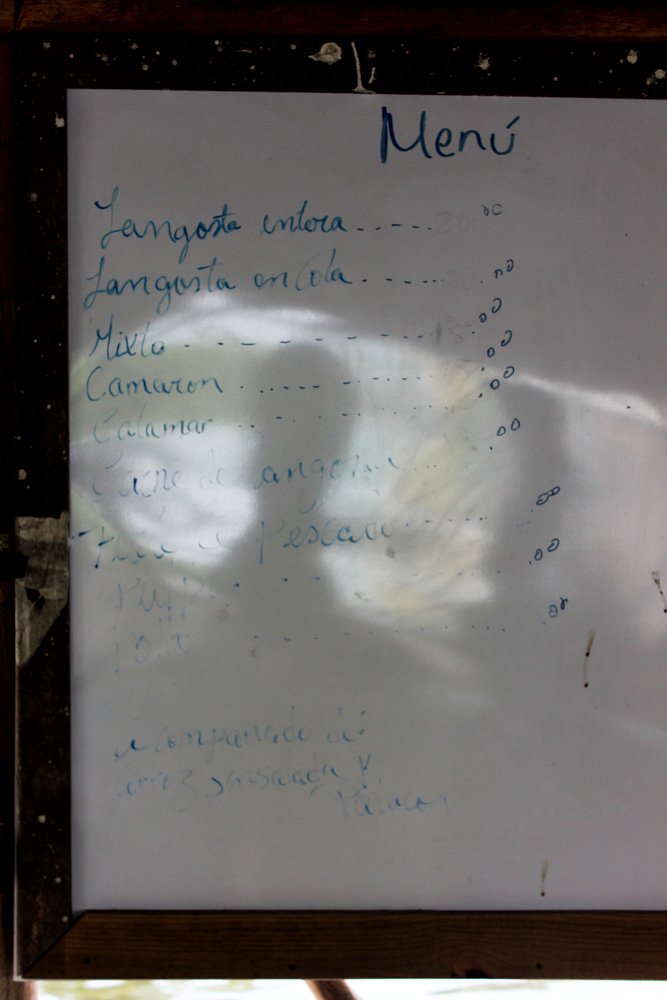 Menú
Langosta entera ..... 20 00
Langosta en Cola ...... 00
Mixto ........ 15.00
Camaron ........... .00
Calamar ........ .00
Carne de Langosta ... .00
Filete de Pescado ..... .00
Pulpo ....... .00
Pollo ....... .00
acompañado de:
arroz, ensalada y
Patacon